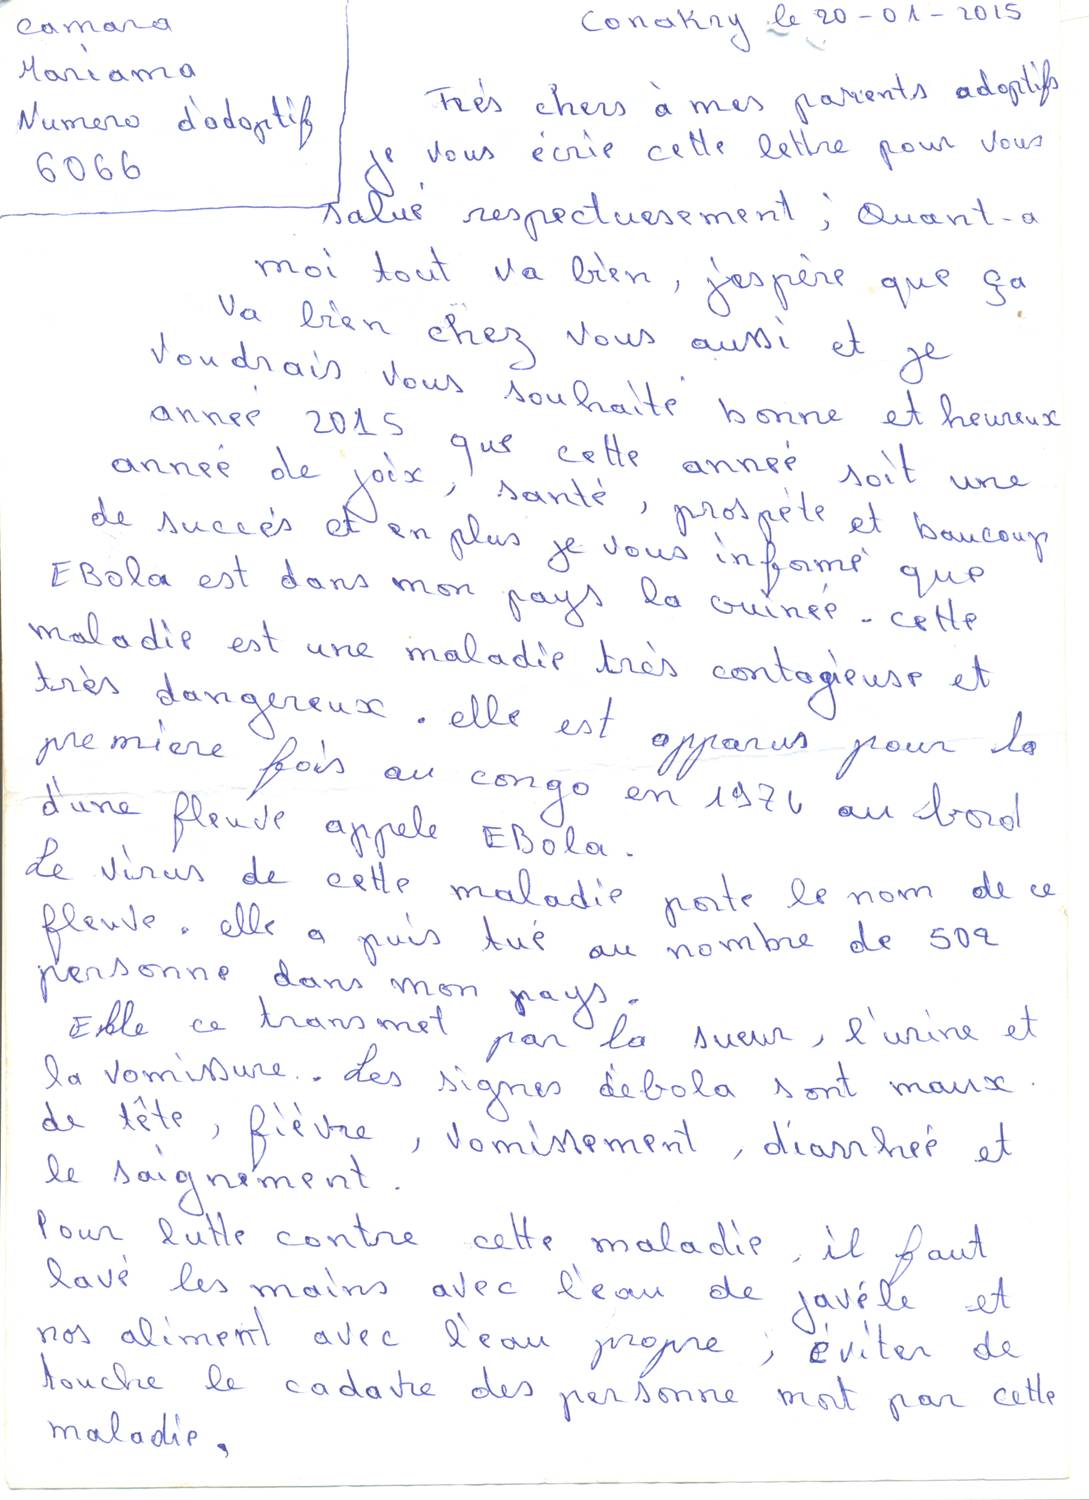 camara
Mariama
Numero d'adoptif
6066
Conakry le 20-01-2015
Trés chers à mes parients adoptifs
je vous écrie cette lettre pour vous
salué respectuesement ; Quant-a
moi tout va bien, j'espère que ça
va bien chez vous aussi et je
voudrais vous souhaité bonne et heureux
anneé 2015 que cette anneé soit une
anneé de joix, santé, prospète et baucoup
de succés et en plus je vous informé que
EBola est dans mon pays la Guineé. cette
maladie est une maladie très contagieuse et
très dangereux. elle est apparus pour la
premiere fois au congo en 1976 au bord
d'une fleuve appele EBola.
Le virus de cette maladie porte le nom de ce
fleuve. elle a puis tué au nombre de 502
personne dans mon pays.
Elle ce transmet par la sueur, l'urine et
la vomissure.. Les signes d'ebola sont maux
de tête, fièvre, vomissement, diarrheé et
le saignement.
Pour lutte contre cette maladie, il faut
lavé les mains avec l'eau de javéle et
nos aliment avec l'eau propre ; éviter de
touche le cadavre des personne mort par cette
maladie.